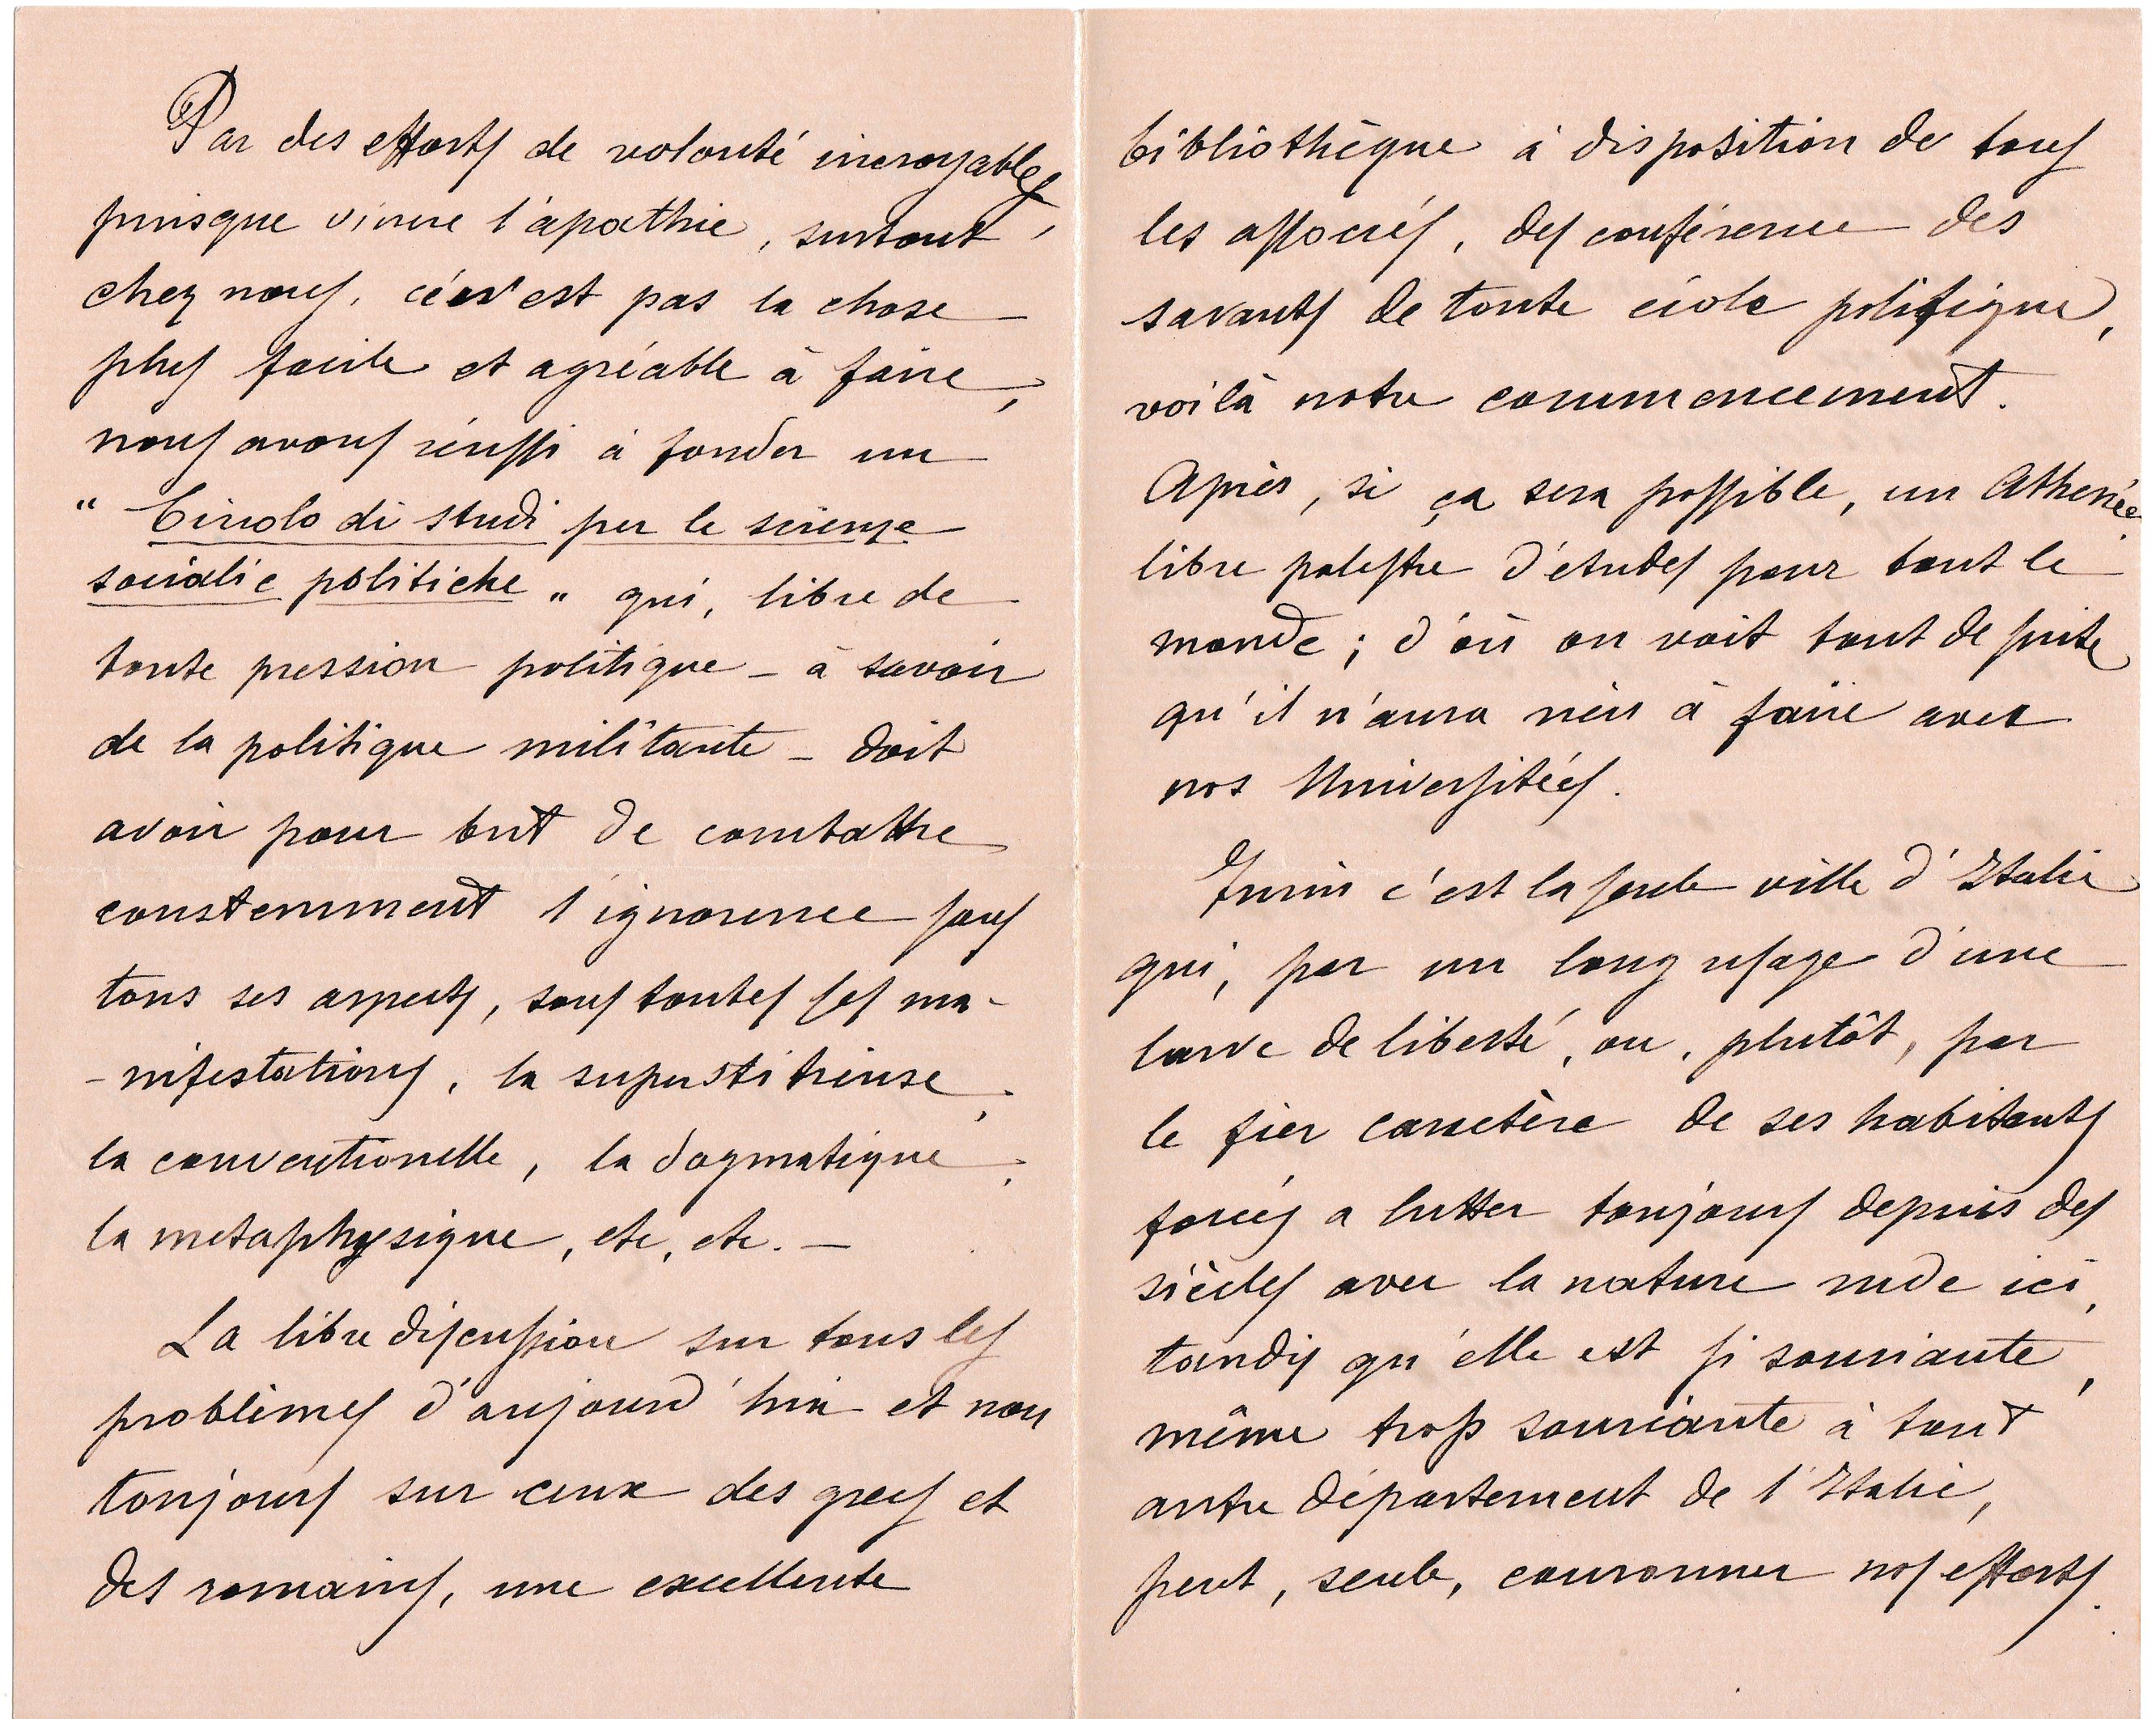 Par des efforts de volonté incroyables,
puisque vincre l'apathie, surtout
chez nous, ce n'est pas la chose
plus facile et agréable à faire,
nous avons réussi à fonder un
" Circolo di studi per le scienze
sociali e politiche " qui, libre de
toute pression politique - à savoir
de la politique militante - doit
avoir pour but de combattre
constemment l'ignorence sous
tous ses aspects, sous toutes ses ma-
-nifestations, la superstitieuse,
la conventionelle, la dogmatique,
la metaphysique, etc, etc. -
La libre discussion sur tous les
problèmes d'aujourd'hui et non
toujours sur ceux des grecs et
des romains, une excellente
bibliothèque à disposition de tous
les associés, des conférence des
savants de toute école politique,
voilà notre commencement.
Après, si ça sera possible, un Athenée
libre palestre d'études pour tout le
monde; d'où on voit tout de suite
qu'il n'aura rien à faire avec
nos Universitées.
Turin c'est la seule ville d'Italie
qui, par un long usage d'une
larve de liberté, ou, plutôt, par
le fier caractère de ses habitants
forcés a lutter toujours depuis des
siècles avec la nature rude ici,
tandis qu'elle est si souriante,
même trop souriante à tout
autre département de l'Italie,
peut, seule, couronner nos efforts.